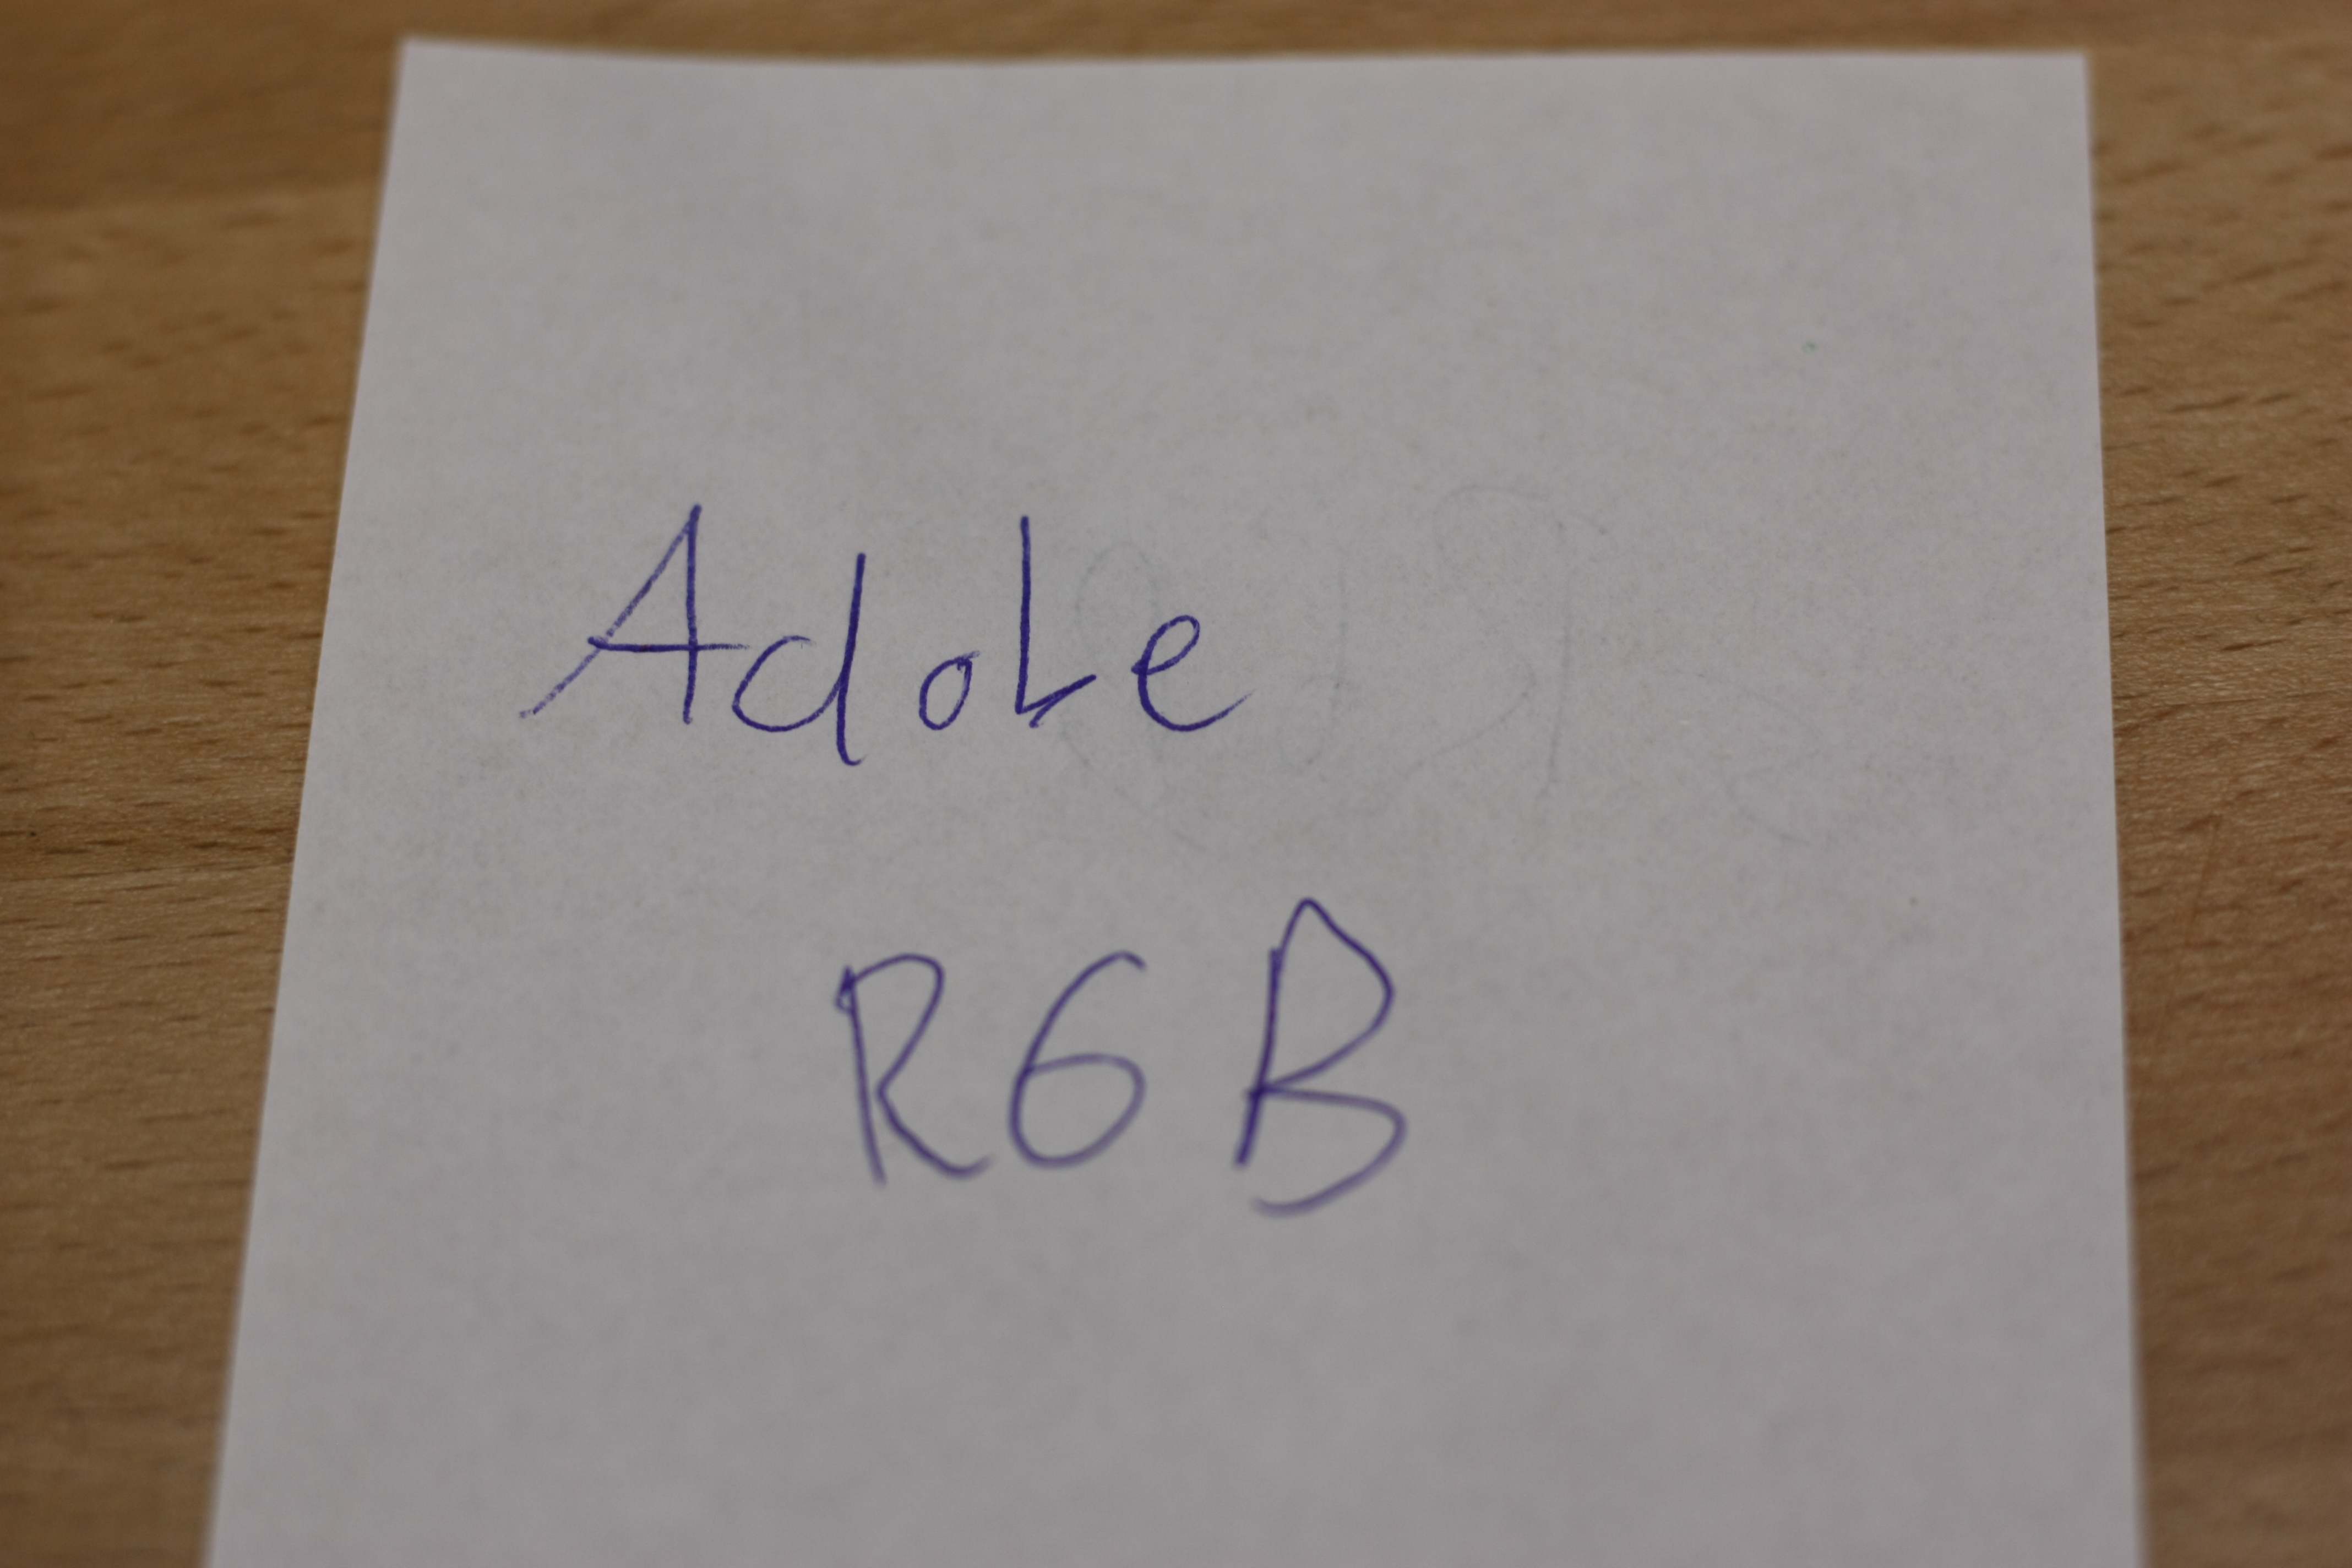 Adobe
RGB